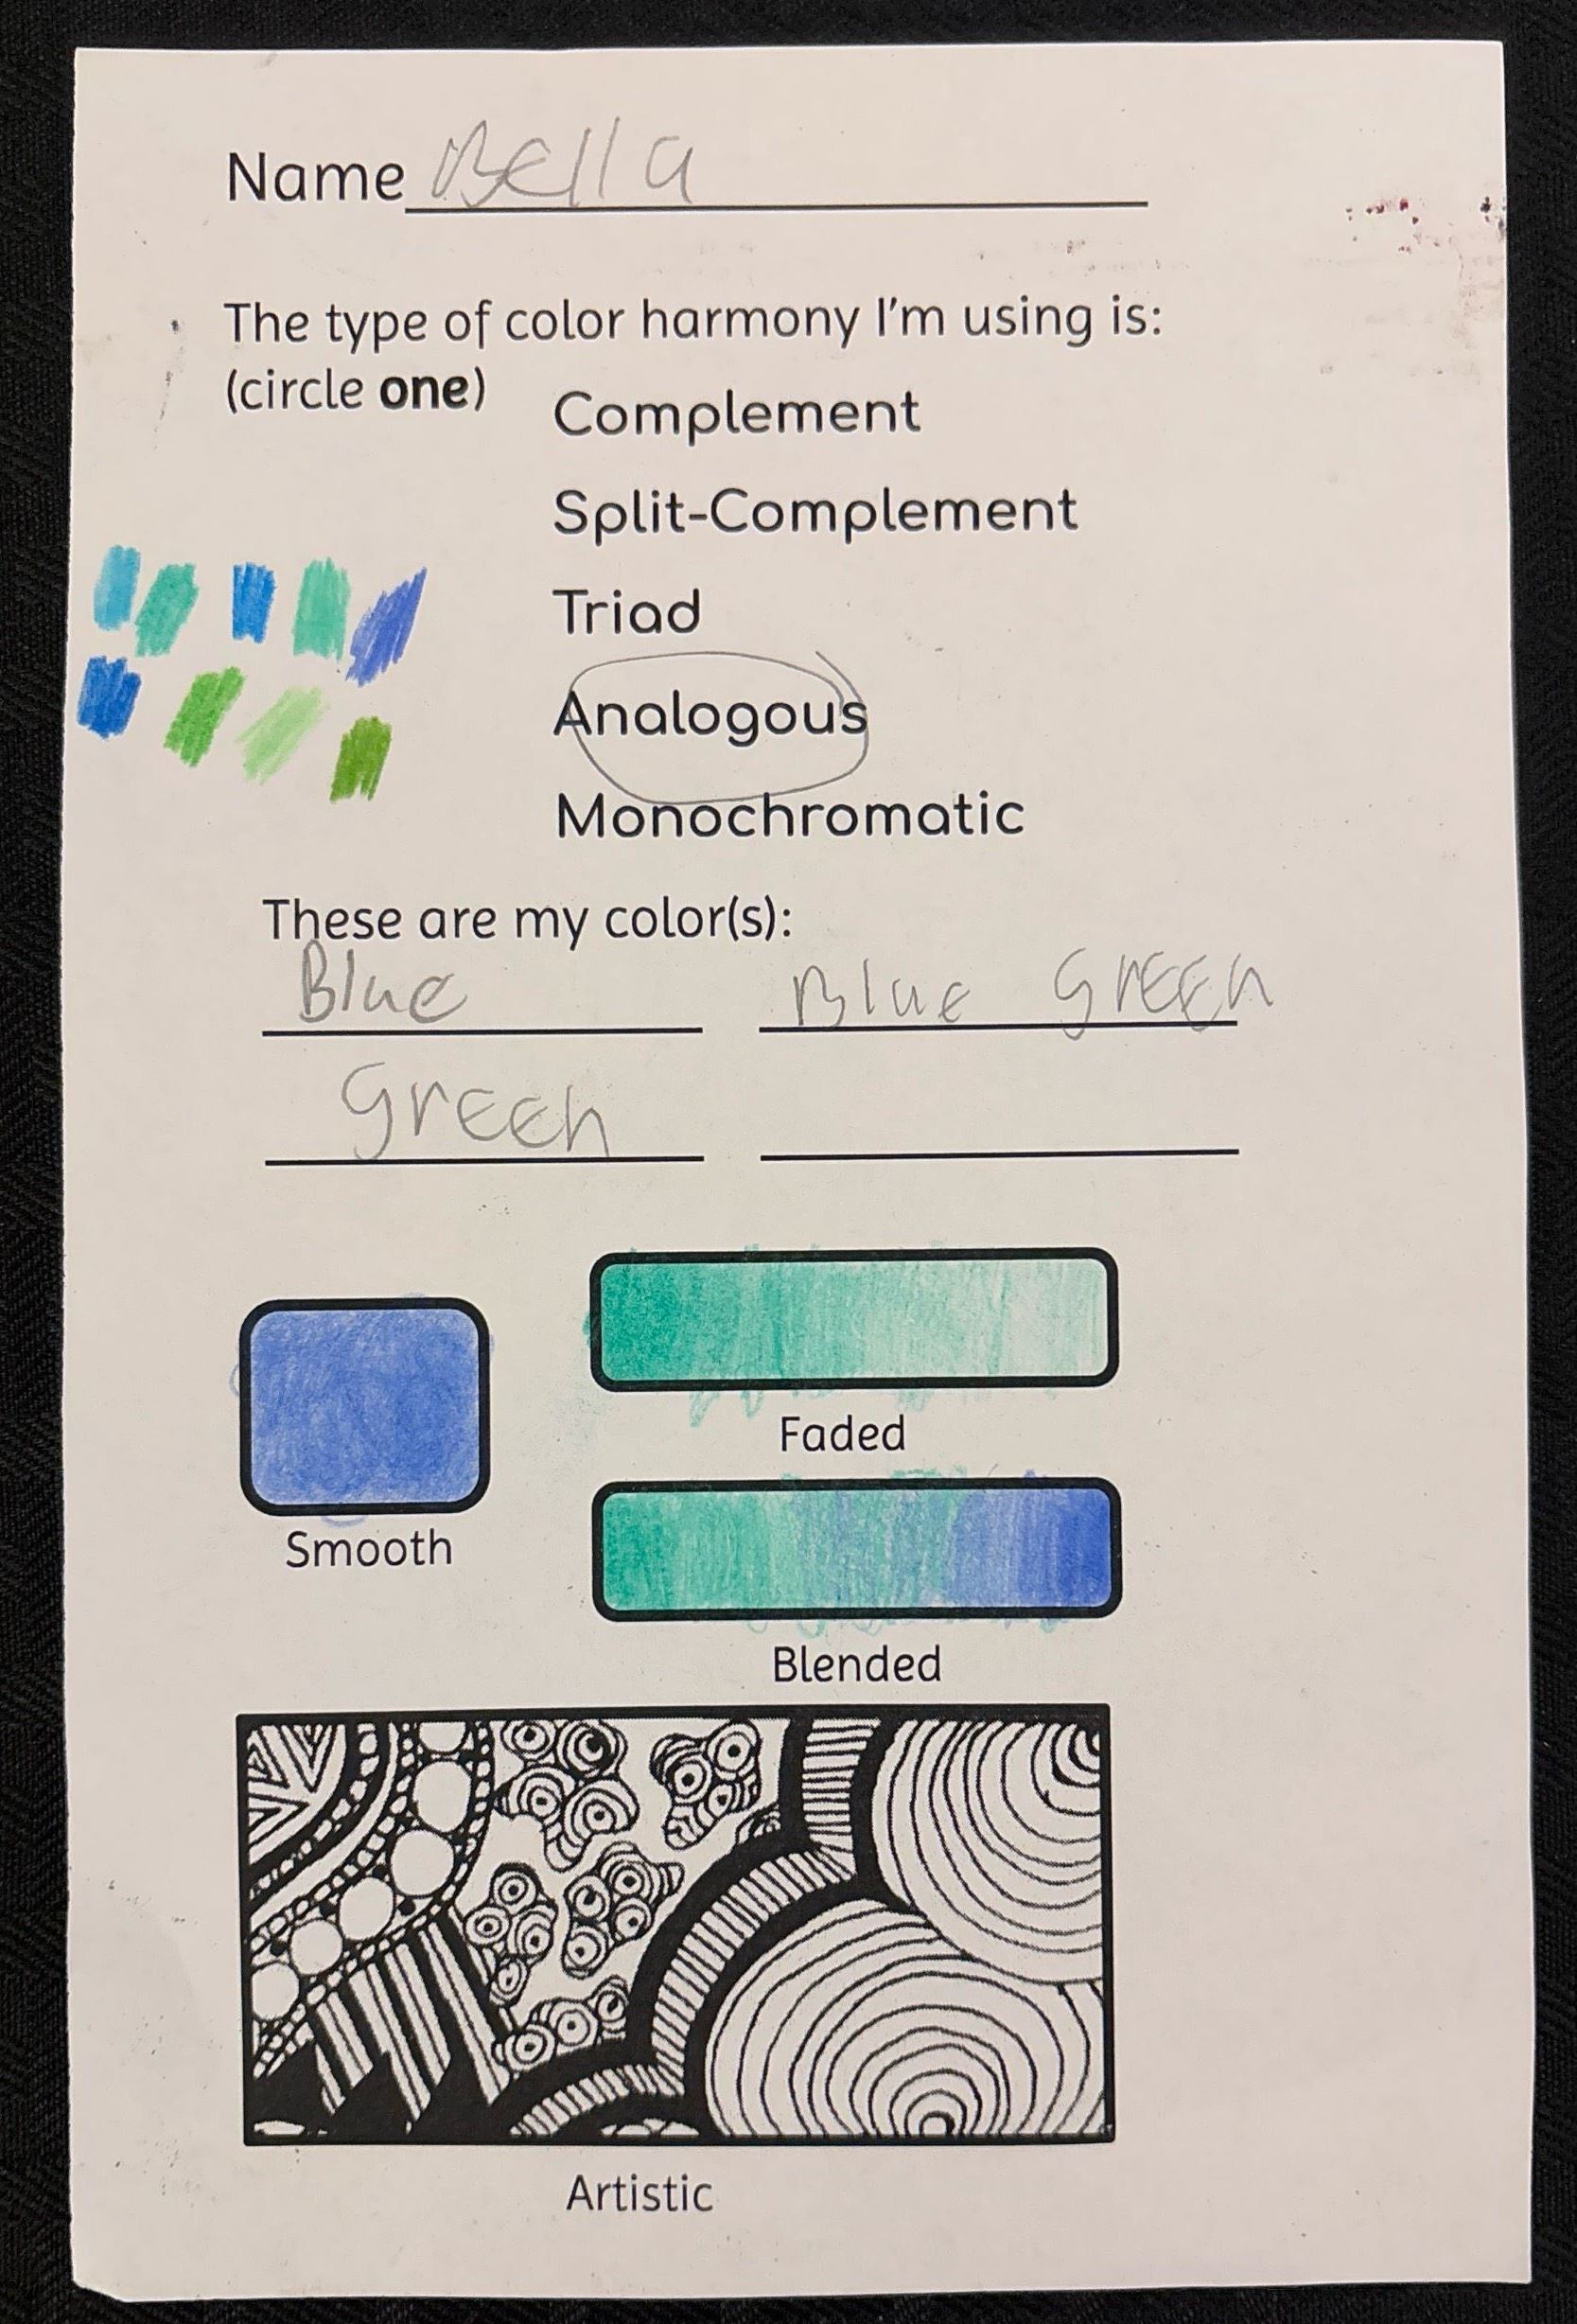 Name Bella
The type of color harmony I'm using is:
(circle one)
Complement
Split-Complement
Triad
Analogous
Monochromatic
These are my color(s):
Blue Blue Green
green
Faded
Smooth
Blended
Artistic